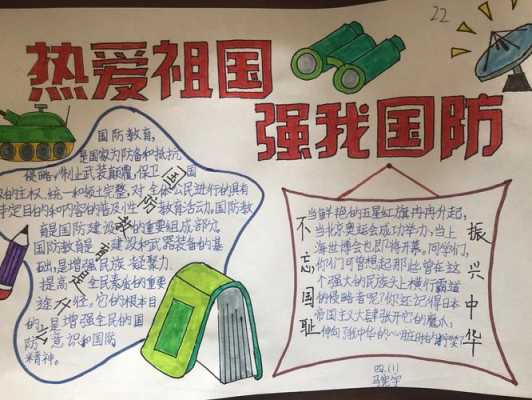 22
热爱祖国
强我国防
国防教育,
是国家为防备和抵抗
侵略,制止武装颠覆,保卫国
的主权、统一和领土完整,对全体公民进行的具有
定目的和内容的普及性 教育活动。国防教
育是国防建设的重要组成部分。
国防教育是 建设和武器装备的基
础,是增强民族凝聚力.
提高 全民素质的重要
途径。它的根本目
的,是增强全民的国
防 意识和国防
精神。
不忘国耻
当鲜艳的五星红旗冉冉升起,
当北京奥运会成功举办,当上
海世博会也即将开幕,同学们,
你们可曾想起那些曾在这
个强大的民族头上横行霸道
的侵略者呢?你还记得日本
帝国主义大肆张开它的魔爪,
伸向
振兴中华
四.(1)